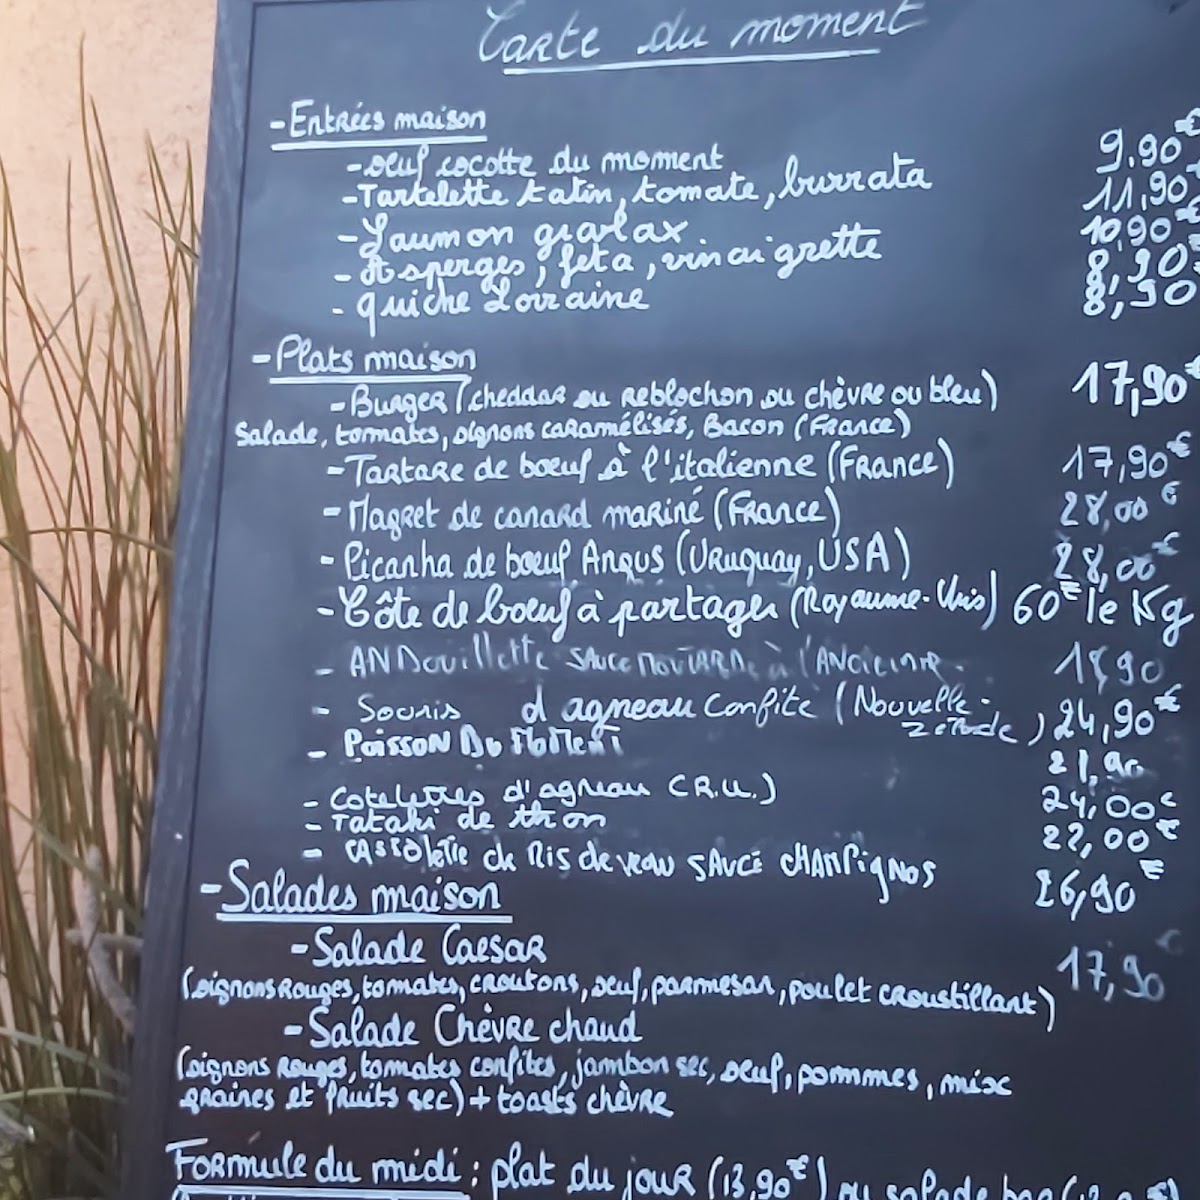 Carte du moment
- Entrées maison
- Oeuf cocotte du moment 9.90€
- Tartelette tatin, tomate, burrata 11,90€
- Saumon gravlax 10,90€
- Asperges, feta, vinaigrette 8,90€
- quiche Lorraine 8,90
- Plats maison
- Burger (cheddar ou reblochon ou chèvre ou bleu) 17,90€
Salade, tomates, oignons caramélisés, Bacon (France)
- Tartare de boeuf à l'italienne (France) 17,90€
- Magret de canard mariné (France) 28,00€
- Picanha de boeuf Angus (Uruguay, USA) 28,00€
- Côte de boeuf à partager (Royaume-Unis) 60€ le Kg
- ANDouillette SAUCE MOUTARDe à l'ANCienne 18,90
- Souris d'agneau confite (Nouvelle- 24,90€
Zélande)
- POISSON Du MOMENT 21,90
- Cotelettes d'agneau (R.U.) 24,00€
- Tataki de thon 22,00€
- CASSOLETTE de RIS de VEAU SAUCE CHAMPIGNOS 26,90€
- Salades maison
- Salade Caesar 17,90€
(oignons Rouges, tomates, croutons, oeuf, parmesan, poulet croustillant)
- Salade Chèvre chaud
(oignons Rouges, tomates confites, jambon sec, oeuf, pommes, mix
graines et fruits sec) + toasts chèvre
Formule du midi : plat du jour (13,90€) ou salade